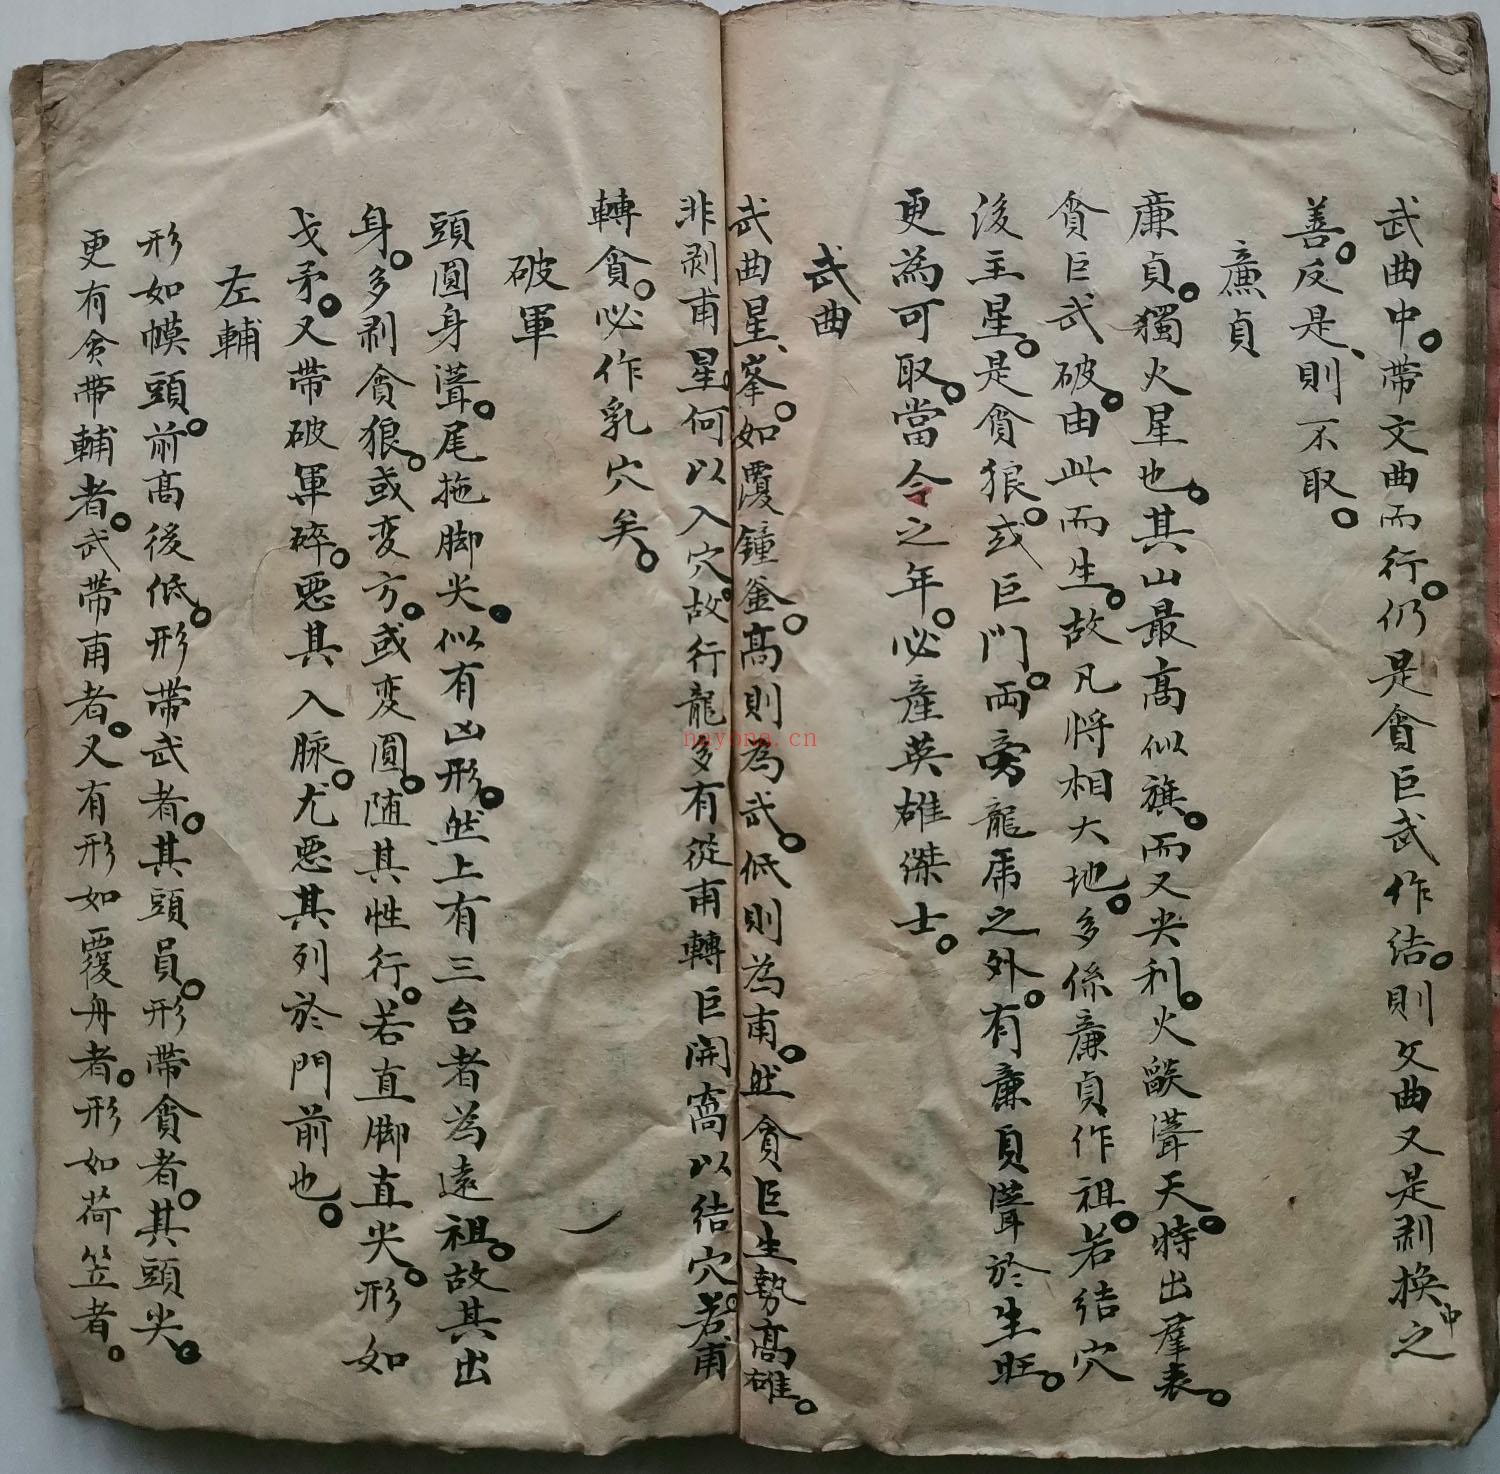 武曲中。帶文曲而行。仍是貪巨武作結。則文曲又是剥换中之
善。反是、則不取。
廉貞
廉貞。獨火星也。其山最高似旗。而又尖利。火燄聳天。特出羣表。
貪巨武破。由此而生。故凡將相大地。多係廉貞作祖。若結穴
後主星。是貪狼。或巨門。両旁龍虎之外。有廉貞聳於生旺。
更為可取。當令之年。必産英雄傑士。
武曲
武曲星、峯。如覆鐘釜。高則為武。低則為甫。然貪巨生勢高雄。
非剥甫星何以入穴。故行龍多有從甫轉巨開窩以結穴。若甫
轉貪。必作乳穴矣。
破軍
頭圓身聳。尾拖脚尖。似有凶形。然上有三台者為遠祖。故其出
身。多剥貪狼。或変方。或変圓。随其性行。若直脚直尖。形如
戈矛。又帶破軍碎。惡其入脉。尤惡其列於門前也。
左輔
形如幞頭。前高後低。形帶武者。其頭員。形帶貪者。其頭尖。
更有貪帶輔者。武帶甫者。又有形如覆舟者。形如荷笠者。
nayona.cn